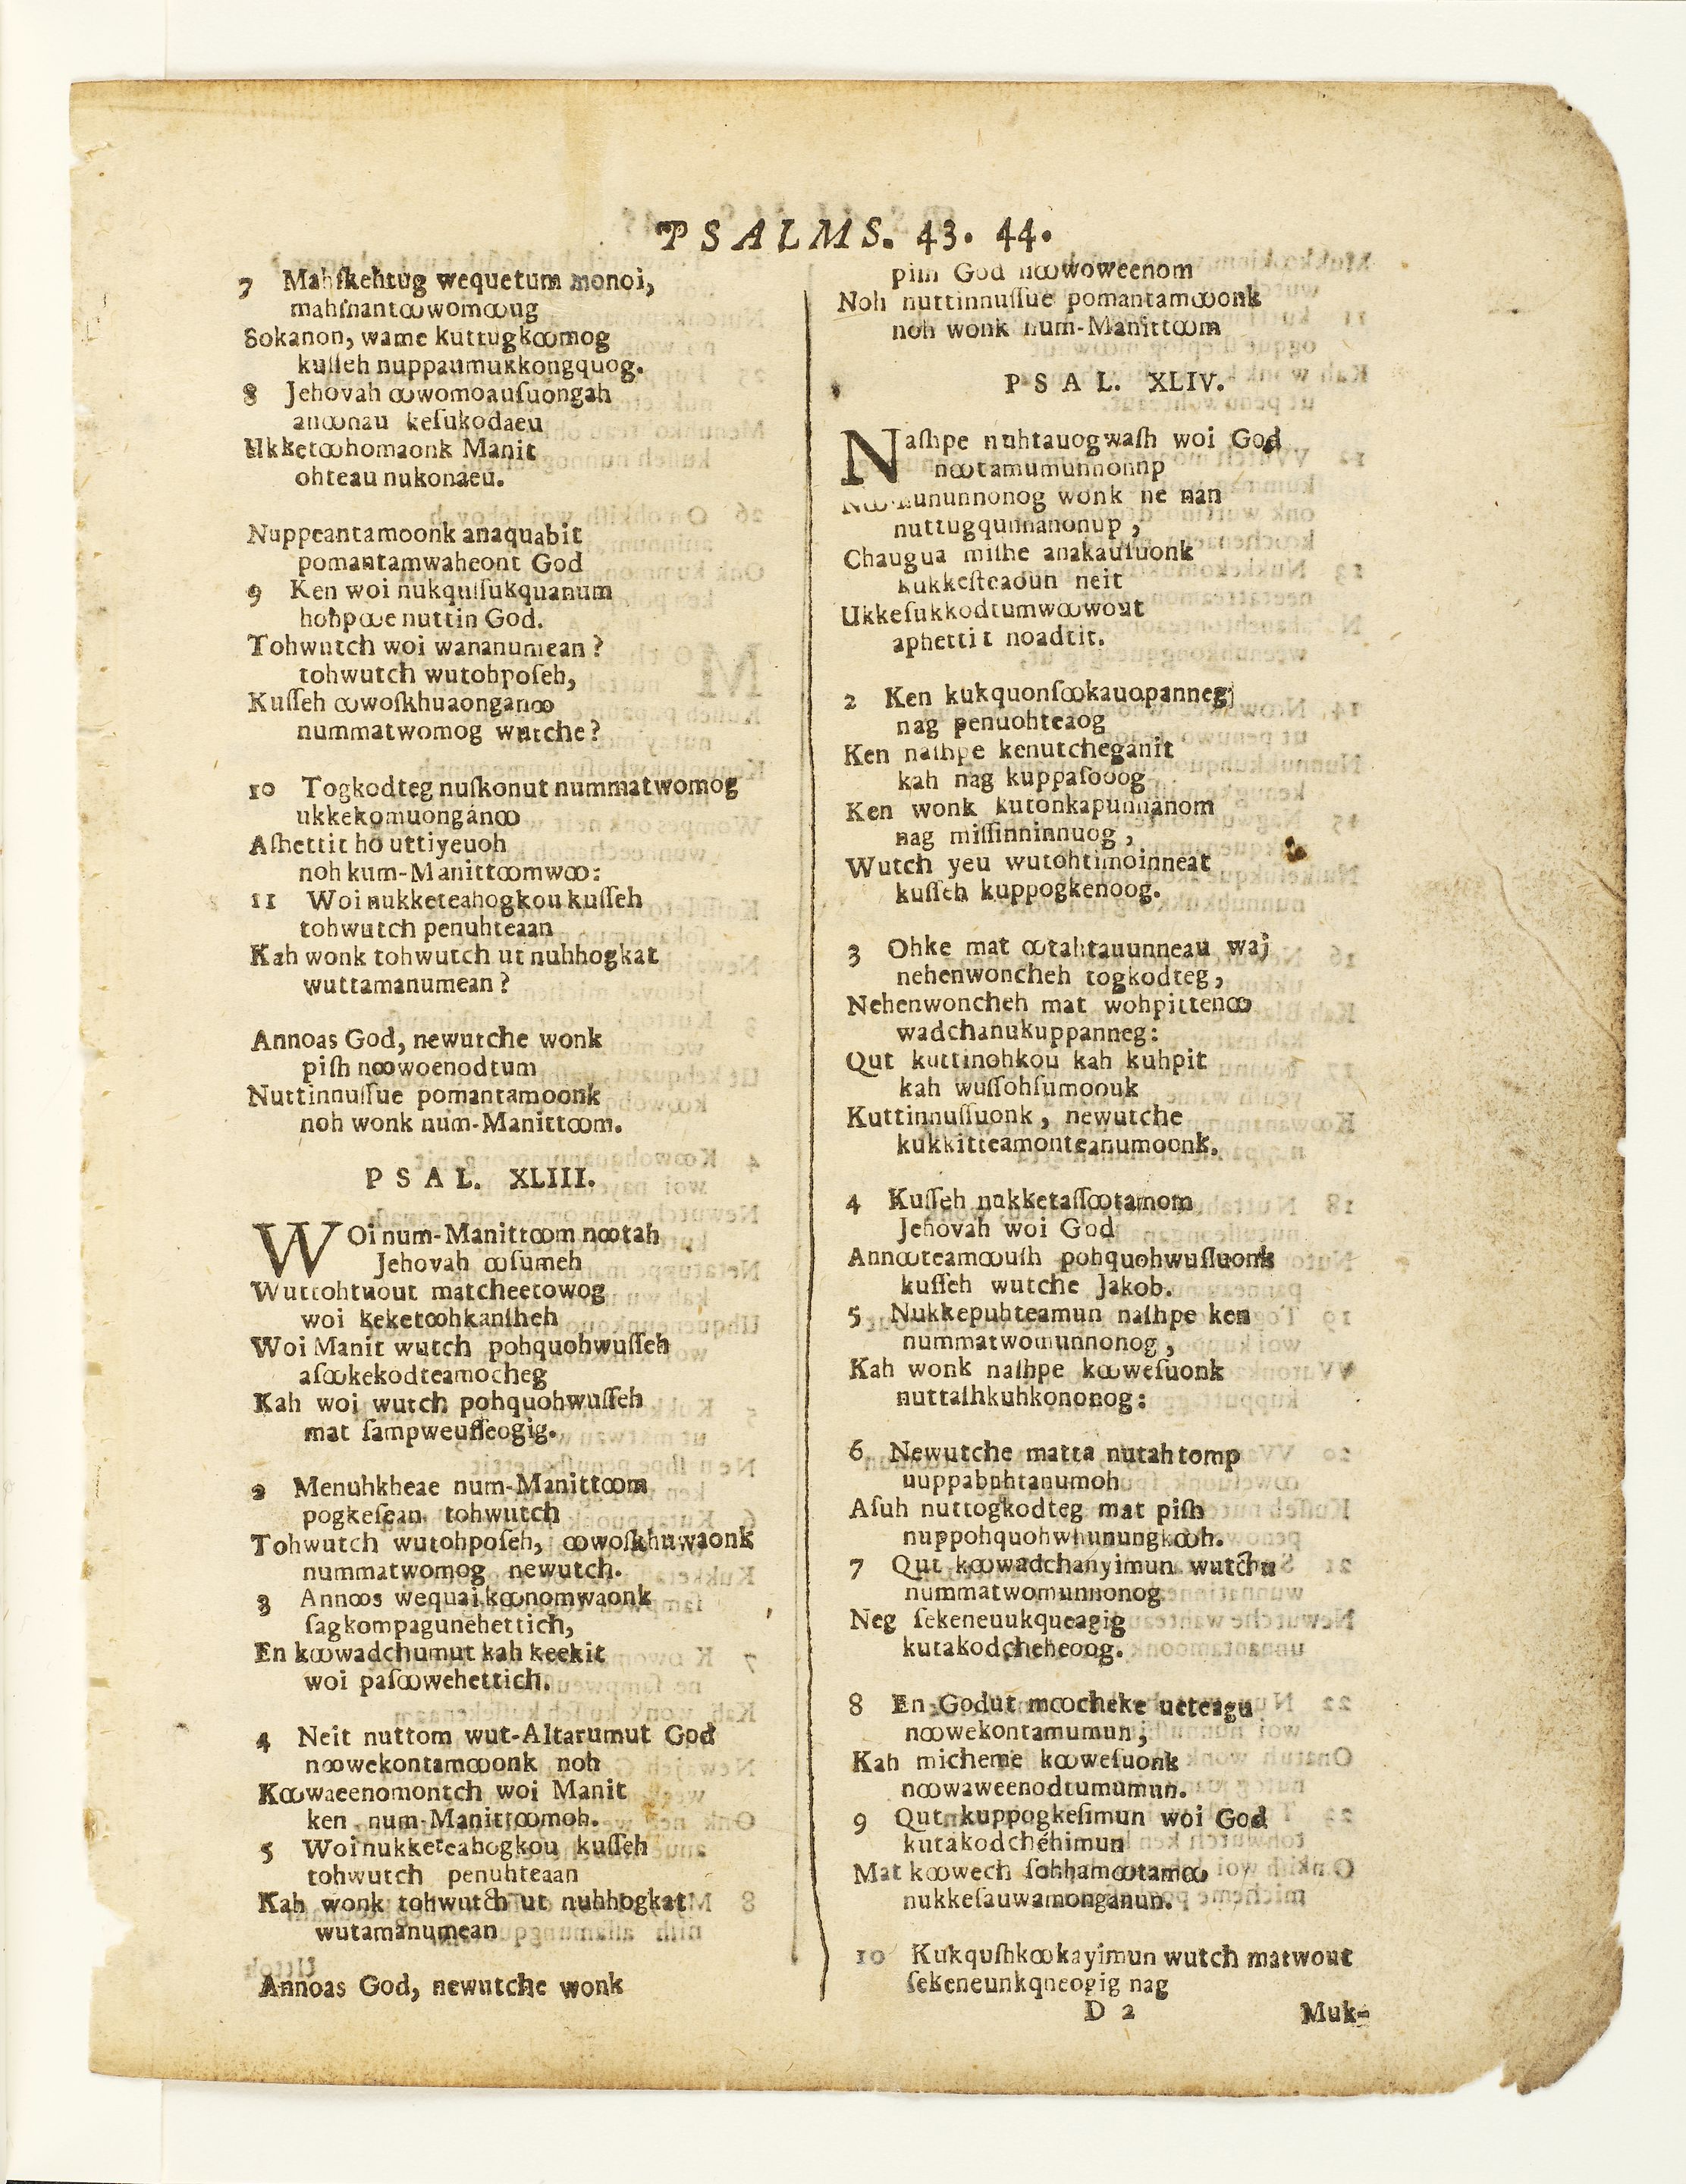 PSALMS. 43. 44.
7 Mahſkehtug wequetum monoi,
mahſnantꝏwomꝏug
Sokanon, wame kuttugkꝏmog
kuſſeh nuppaumukkongquog.
8 Jehovah ꝏwomoauſuongah
anꝏnau keſukodaeu
Ukketꝏhomaonk Manit
ohteau nukonaeu.
Nuppeantamoonk anaquabit
pomantamwaheont God
9 Ken woi nukquſſukquanum
hohpꝏe nuttin God.
Tohwutch woi wananumean?
tohwutch wutohpoſeh,
Kuſſeh ꝏwoſkhuaonganꝏ
nummatwomog wutche?
10 Togkodteg nuſkonut nummatwomog
ukkekomuongánꝏ
Aſhettit ho uttiyeuoh
noh kum-Manittꝏmwꝏ:
11 Woi nukketeahogkou kuſſeh
tohwutch penuhteaan
Kah wonk tohwutch ut nuhhogkat
wuttamanumean?
Annoas God, newutche wonk
piſh nꝏwoenodtum
Nuttinnuſſue pomantamoonk
noh wonk num-Manittꝏm.
PSAL. XLIII.
WOi num-Manittꝏm nꝏtah
Jehovah ꝏſumeh
Wuttohtuout matcheetowog
woi keketꝏhkanſheh
Woi Manit wutch pohquohwuſſeh
aſꝏkekodteamocheg
Kah woi wutch pohquohwuſſeh
mat ſampweuſſeogig.
2 Menuhkheae num-Manittꝏm
pogkeſean tohwutch
Tohwutch wutohpoſeh, ꝏwoſkhuwaonk
nummatwomog newutch.
3 Annoos wequai kꝏnomwaonk
ſagkompagunehettich,
En kꝏwadchumut kah keekit
woi paſꝏwehettich.
4 Neit nuttom wut-Altarumut God
nꝏwekontamꝏonk noh
Kꝏwaeenomontch woi Manit
ken num-Manittꝏmoh.
5 Woi nukketeahogkou kuſſeh
tohwutch penuhteaan
Kah wonk tohwutch ut nuhhogkat
wutamanumean
Annoas God, newutche wonk
piſh God nꝏwoweenom
Noh nuttinnuſſue pomantamꝏonk
noh wonk num-Manittꝏm
PSAL. XLIV.
Naſhpe nuhtauogwaſh woi God
nꝏtamumunnonnp
wonk ne nan
nuttugqunnanonup,
Chaugua miſhe anakauſuonk
kukkeſteaoun neit
Ukkeſukkodtumwꝏwout
aphettit noadtit.
2 Ken kukquonſꝏkauopanneg
nag penuohteaog
Ken naſhpe kenutcheganit
kah nag kuppaſooog
Ken wonk kutonkapunnanom
nag miſſinninnuog,
Wutch yeu wutohtimoinneat
kuſſeh kuppogkenoog.
3 Ohke mat ꝏtahtauunneau waj
nehenwoncheh togkodteg,
Nehenwoncheh mat wohpittenꝏ
wadchanukuppanneg:
Qut kuttinohkou kah kuhpit
kah wuſſohſumoouk
Kuttinnuſſuonk, newutche
kukkitteamonteanumoonk.
4 Kuſſeh nukketaſſꝏtamom
Jehovah woi God
Annꝏteamꝏuſh pohquohwuſſuonk
kuſſeh wutche Jakob.
5 Nukkepuhteamun naſhpe ken
nummatwomunnonog,
Kah wonk naſhpe kꝏweſuonk
nuttaſhkuhkononog:
6 Newutche matta nutahtomp
uuppabuhtanumoh
Aſuh nuttogkodteg mat piſh
nuppohquohwhunungkꝏh.
7 Qut kꝏwadchanyimun wutchu
nummatwomunnonog
Neg ſekeneuukqueagig
kutakodcheheoog.
8 En Godut mꝏcheke ueteagu
nꝏwekontamumun;
Kah micheme kꝏweſuonk
nꝏwaweenodtumumun.
9 Qut kuppogkeſimun woi God
kutakodchéhimun
Mat kꝏwech ſohhamꝏtamꝏ
nukkeſauwamonganun.
10 Kukquſhkꝏkayimun wutch matwout
ſekeneunkqneogig nag
D 2 Muk-